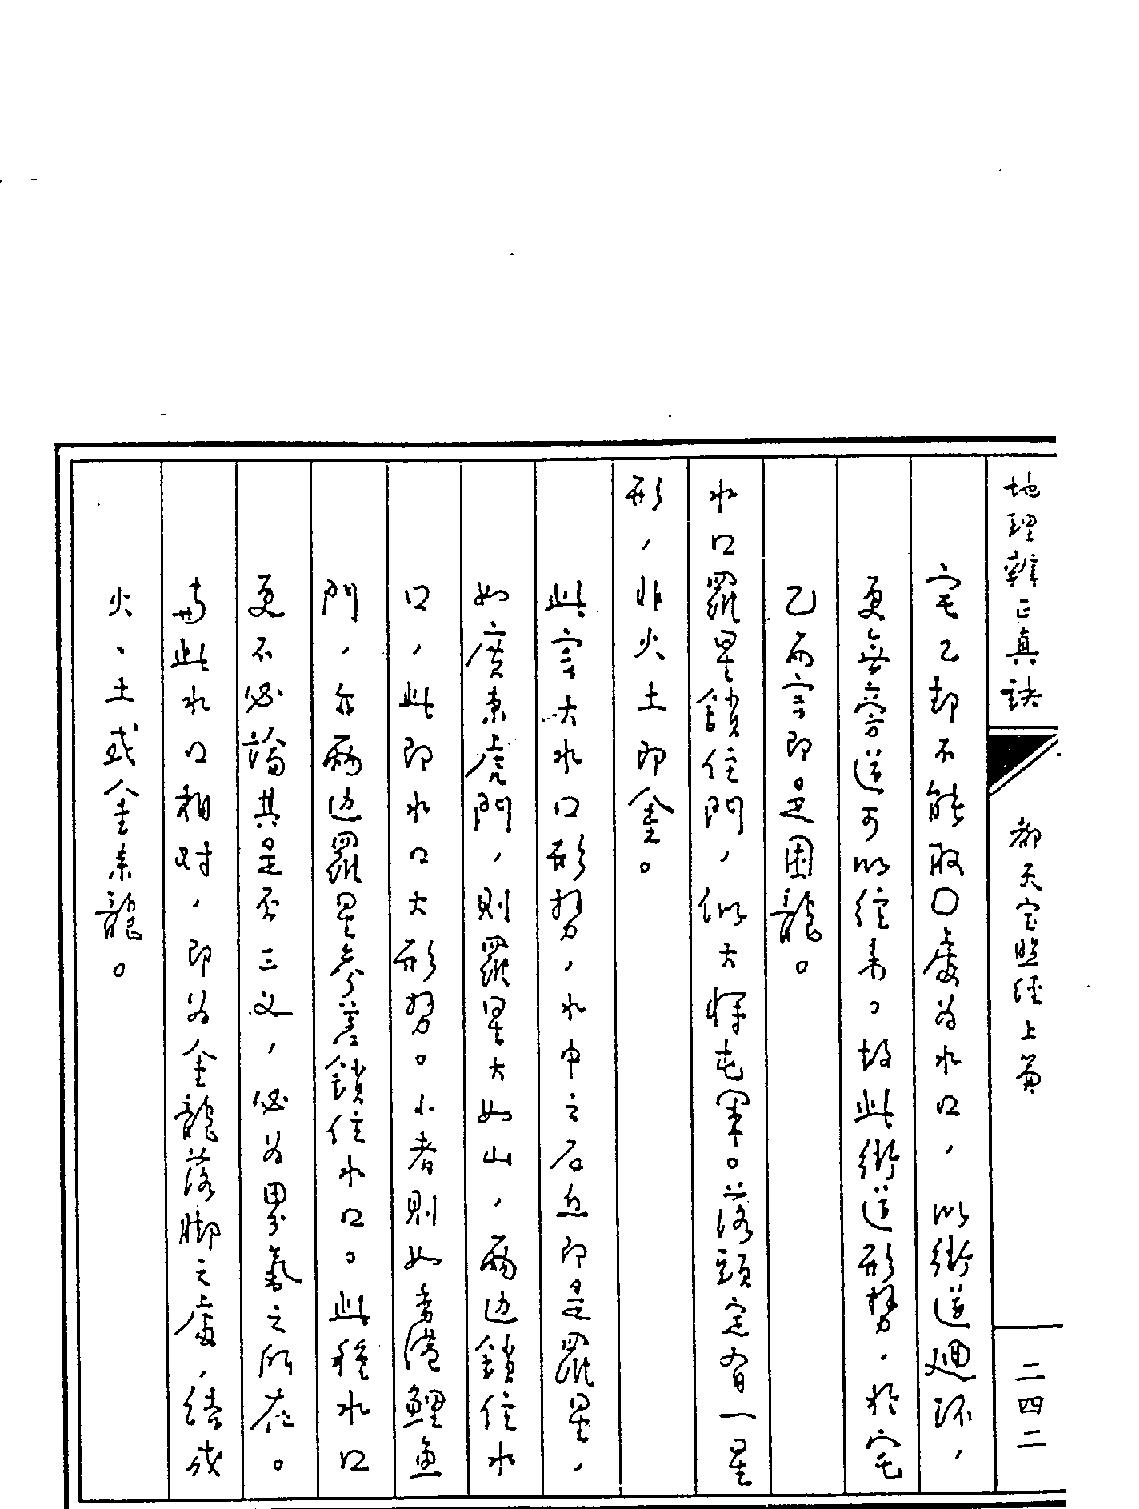 地理辨正真訣
都天宝照经上篇
二四二
宅乙却不能取〇處为水口，以街道迴环，
更無旁道可以往来。故此街道形势，於宅
乙而言即是困龍。
水口羅星鎖住門，似大将屯军。落頭定有一星
形，非火土即金。
此言大水口形势，水中之石島即是羅星，
如廣東虎門，則羅星大如山，兩边鎖住水
口，此即水口大形势。小者則如香港鯉魚
門，亦兩边羅星参差鎖住水口。此種水口
更不必論其是否三叉，必为界氣之所在。
与此水口相对，即为金龍落脚之處，结成
火、土或金来龍。